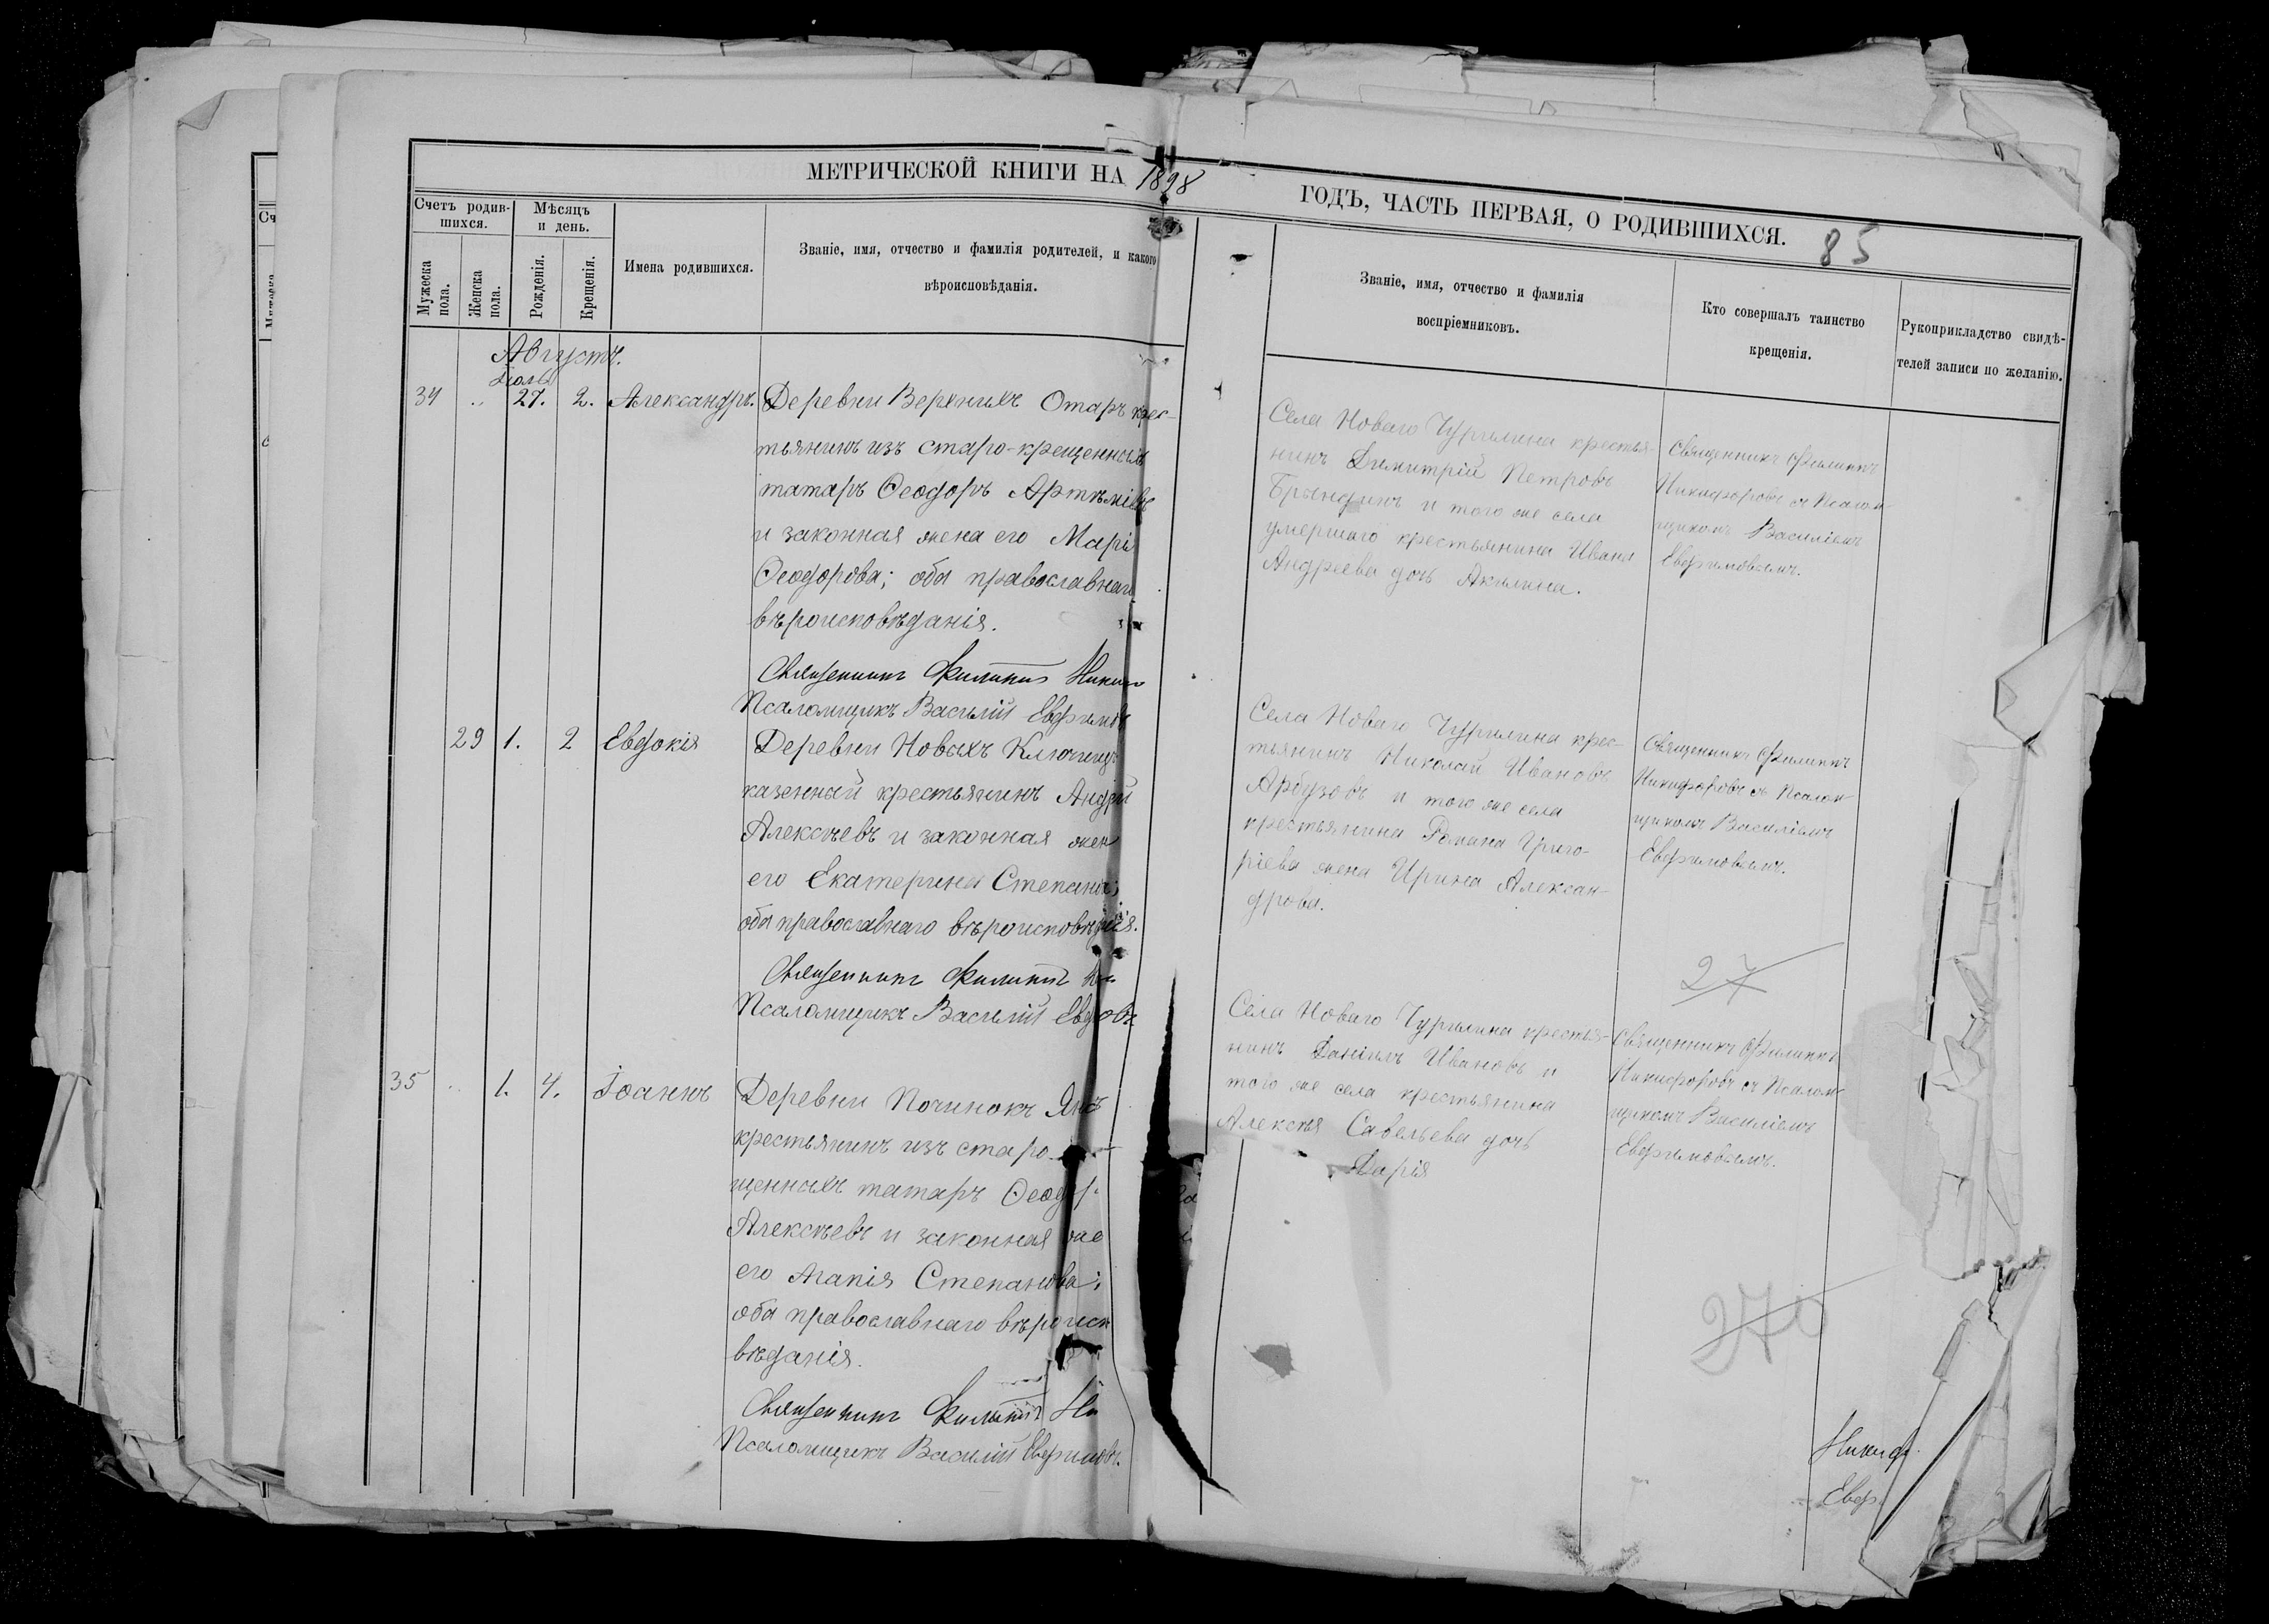 МЕТРИЧЕСКОЙ КНИГИ НА 1898 ГОДЪ, ЧАСТЬ ПЕРВАЯ, О РОДИВШИХСЯ.
85
Счетъ родив-
шихся.
Мужеска
пола.
Женска
пола.
Мѣсяцъ
и день.
Рожденія.
Крещенія.
Имена родившихся.
Званіе, имя, отчество и фамилія родителей, и какого
вѣроисповѣданія.
Званіе, имя, отчество и фамилія
воспріемниковъ.
Кто совершалъ таинство
крещенія.
Рукоприкладство свидѣ-
телей записи по желанію.
Августъ.
Іюль
34 27. 2. Александръ.
Деревни Верхнихъ Отаръ крес-
тьянинъ изъ старо-крещенныхъ
татаръ Ѳеодоръ Артемі
и законная жена его Марі
Ѳеодорова; оба православнаго
вѣроисповѣданія.
Священникъ Филиппъ
Псаломщикъ Василій Евфимов
Села Новаго Чурилина крестья-
нинъ Димитрій Петровъ
Брындинъ и того же села
умершаго крестьянина Ивана
Андреева дочь Акилина.
Священникъ Филиппъ
Никифоровъ съ Псалом-
щикомъ Василіемъ
Евфимовымъ.
29 1. 2 Евдокія
Деревни Новыхъ Ключищъ
казенный крестьянинъ Андрей
Алексѣевъ и законная жен
его Екатерина Степанова;
оба православнаго
Священникъ Филиппъ
Псаломщикъ Василій
Села Новаго Чурилина крес-
тьянинъ Николай Ивановъ
Арбузовъ и того же села
крестьянина Романа Григо-
ріева жена Ирина Алексан-
дрова.
Священникъ Филиппъ
Никифоровъ съ Псалом-
щикомъ Василіемъ
Евфимовымъ.
27
35 1. 4. Іоаннъ
Деревни Починокъ
крестьянинъ изъ старо-
щенныхъ татаръ Ѳеодор
Алексѣевъ и законная же
его Агапія Степанова;
оба православнаго вѣроисп
вѣданія.
Священникъ Филиппъ Ни
Псаломщикъ Василій Евфимовъ.
Села Новаго Чурилина крестья-
нинъ Даніилъ Ивановъ и
того же села крестьянина
Алексѣя Савельева дочь
Дарія
Священникъ Филиппъ
Никифоровъ съ Псалом-
щикомъ Василіемъ
Евфимовымъ.
270
Никиф
Евф